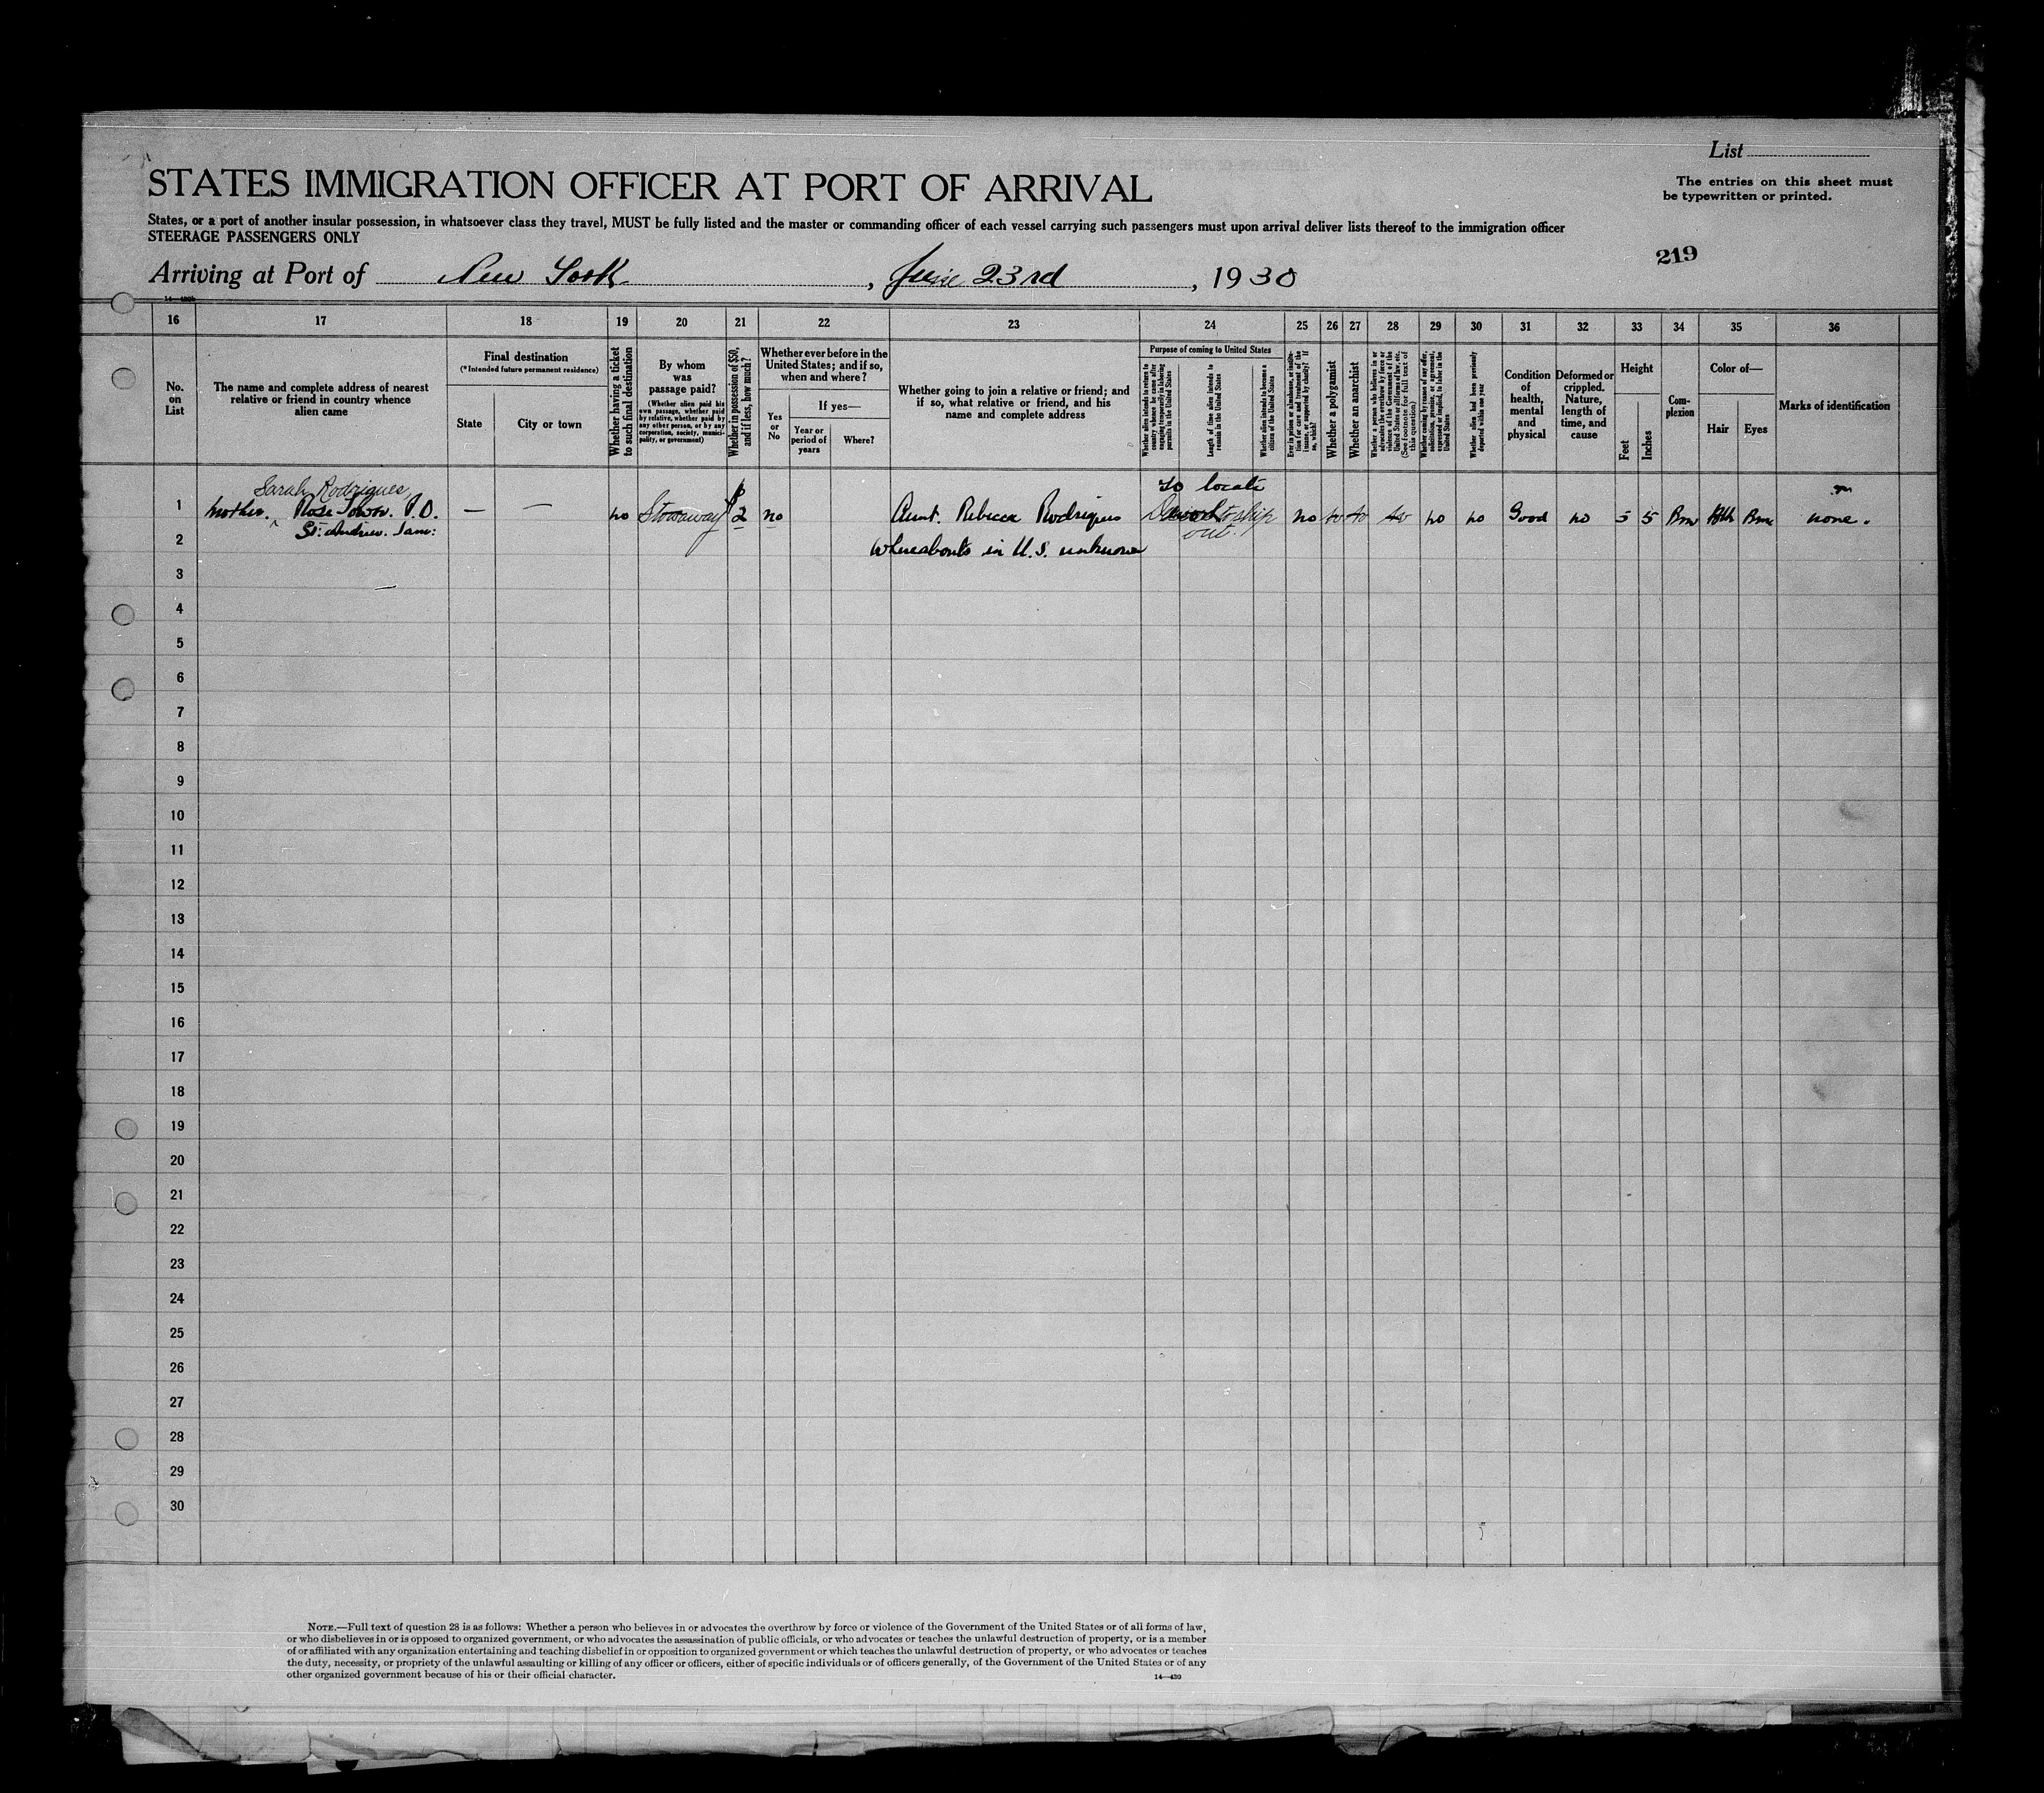 List
The entries on this sheet must
be typewritten or printed.
STATES IMMIGRATION OFFICER AT PORT OF ARRIVAL
States, or a port of another insular possession, in whatsoever class they travel, MUST be fully listed and the master or commanding officer of each vessel carrying such passengers must upon arrival deliver lists thereof to the immigration officer
STEERAGE PASSENGERS ONLY
219
Arriving at Port of New York, June 23rd, 1930
16 17 18 19 20 21 22 23 24 25 26 27 28 29 30 31 32 33 34 35 36
No.
on
List
The name and complete address of nearest
relative or friend in country whence
alien came
Final destination
(*Intended future permanent residence)
State
City or town
Whether having a ticket
to such final destination
By whom
was
passage paid?
(Whether alien paid his
own passage, whether paid
by relative, whether paid by
any other person, or by any
corporation, society, munici-
pality, or government)
Whether in possession of $50,
and if less, how much?
Whether ever before in the
United States; and if so,
when and where?
Yes
or
No
If yes—
Year or
period of
years
Where?
Whether going to join a relative or friend; and
if so, what relative or friend, and his
name and complete address
Purpose of coming to United States
Whether alien intends to return to
country whence he came after
engaging temporarily in laboring
pursuits in the United States
Length of time alien intends to
remain in the United States
Whether alien intends to become a
citizen of the United States
Ever in prison or almshouse, or institu-
tion for care and treatment of the
insane, or supported by charity? If
so, which?
Whether a polygamist
Whether an anarchist
Whether a person who believes in or
advocates the overthrow by force or
violence of the Government of the
United States or all forms of law, etc.
(See footnote for full text of
this question)
Whether coming by reason of any offer,
solicitation, promise, or agreement,
expressed or implied, to labor in the
United States
Whether alien had been previously
deported within one year
Condition
of
health,
mental
and
physical
Deformed or
crippled.
Nature,
length of
time, and
cause
Height
Feet
Inches
Com-
plexion
Color of—
Hair
Eyes
Marks of identification
Sarah Rodriques,
to locate
1 Mother. Rose Town. P.O. — — no Stowaway $2 no Aunt. Rebecca Rodriques to ship no no no no no no Good no 5 5 Brn Blk Brn none.
St. Andrew. Jam:
out.
2 Whereabouts in U.S. unknown
3
4
5
6
7
8
9
10
11
12
13
14
15
16
17
18
19
20
21
22
23
24
25
26
27
28
29
30
NOTE.—Full text of question 28 is as follows: Whether a person who believes in or advocates the overthrow by force or violence of the Government of the United States or of all forms of law,
or who disbelieves in or is opposed to organized government, or who advocates the assassination of public officials, or who advocates or teaches the unlawful destruction of property, or is a member
of or affiliated with any organization entertaining and teaching disbelief in or opposition to organized government or which teaches the unlawful destruction of property, or who advocates or teaches
the duty, necessity, or propriety of the unlawful assaulting or killing of any officer or officers, either of specific individuals or of officers generally, of the Government of the United States or of any
other organized government because of his or their official character.
14—430